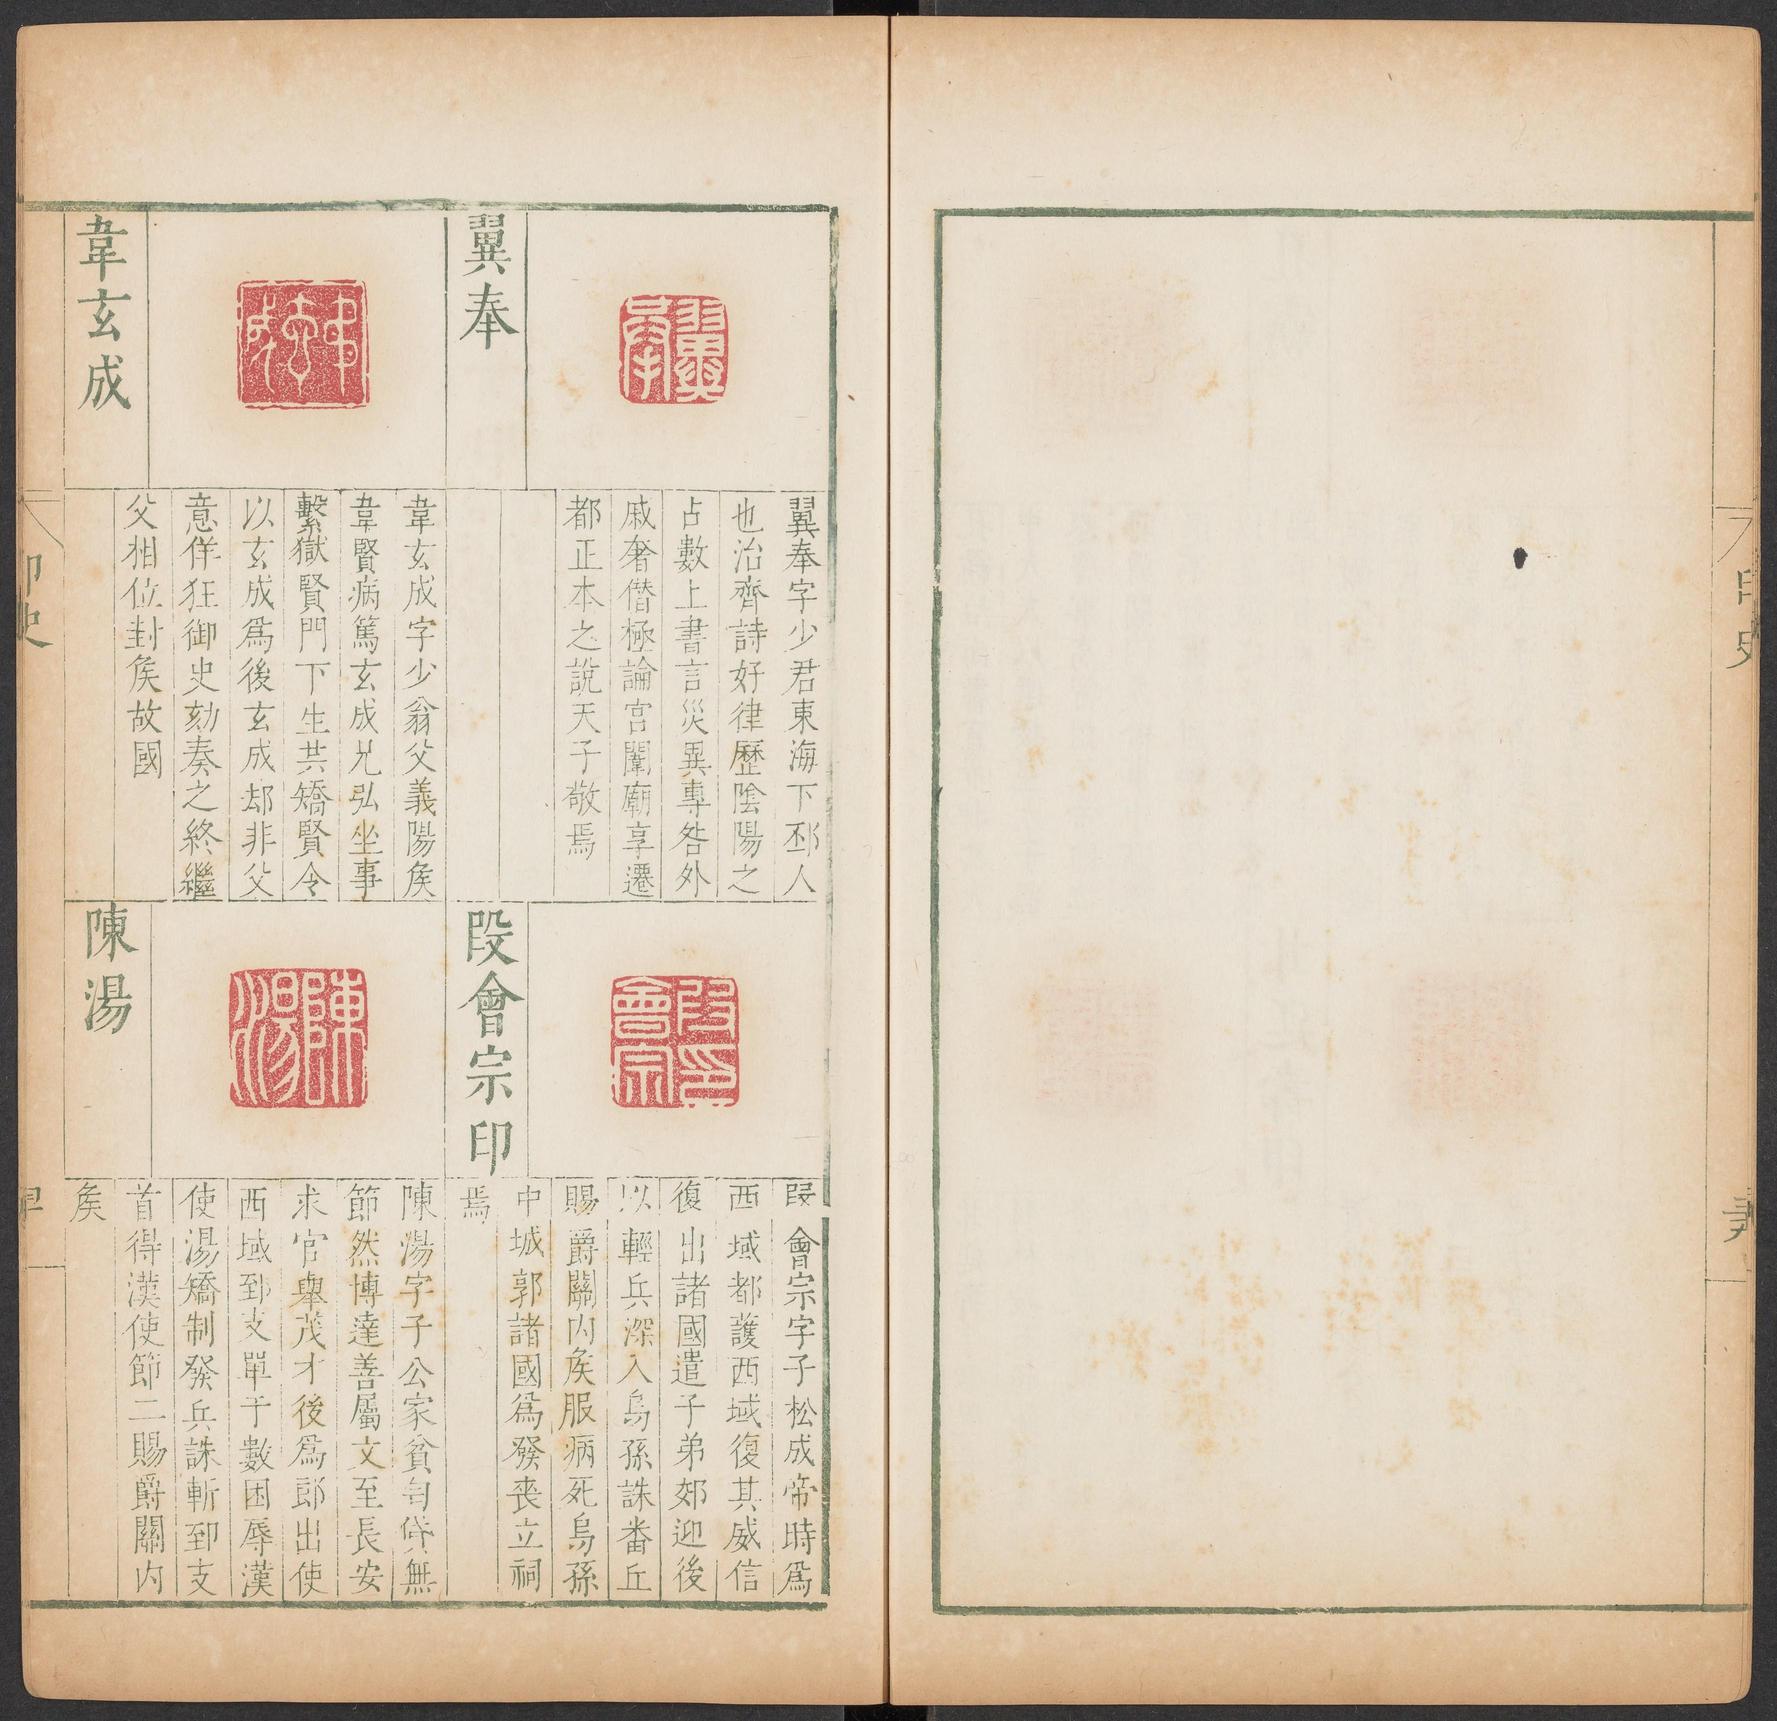 印史
翼奉
翼奉字少君東海下邳人
也治齊詩好律歷陰陽之
占數上書言災異專咎外
戚奢僭極論宮闈廟享遷
都正本之說天子敬焉
韋玄成
韋玄成字少翁父義陽矦
韋賢病篤玄成兄弘坐事
繫獄賢門下生共矯賢令
以玄成爲後玄成却非父
意佯狂御史劾奏之終繼
父相位封矦故國
段會宗印
段會宗字子松成帝時爲
西域都護西域復其威信
復出諸國遣子弟郊迎後
以輕兵深入烏孫誅番丘
賜爵關内矦服病死烏孫
中城郭諸國爲發喪立祠
焉
陳湯
陳湯字子公家貧匄貸無
節然博達善屬文至長安
求官舉茂才後爲郎出使
西域郅支單于數困辱漢
使湯矯制發兵誅斬郅支
首得漢使節二賜爵關内
矦
印史